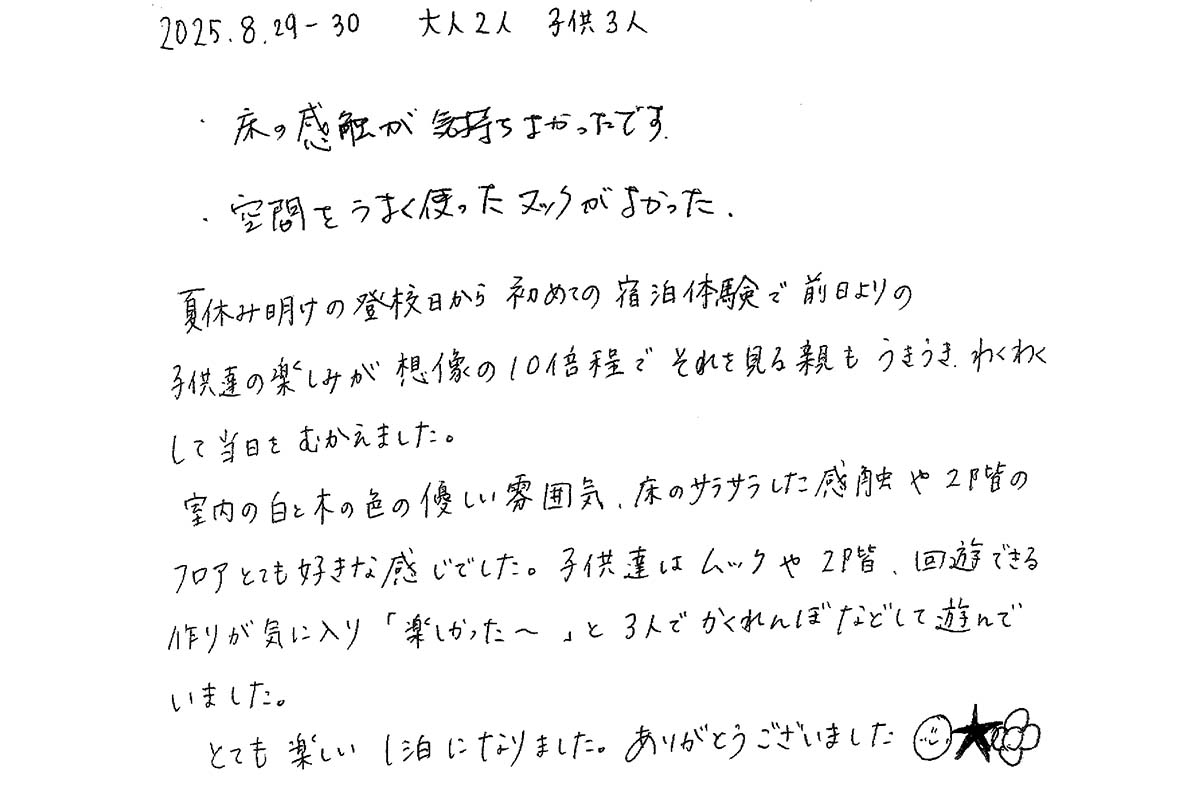 2025.8.29-30 大人2人 子供3人
・床の感触が気持ちよかったです.
・空間をうまく使ったヌックがよかった.
夏休み明けの登校日から初めての宿泊体験で前日よりの
子供達の楽しみが想像の10倍程でそれを見る親もうきうき、わくわく
して当日をむかえました。
室内の白と木の色の優しい雰囲気、床のサラサラした感触や2階の
フロアとても好きな感じでした。子供達はムックや2階、回遊できる
作りが気に入り「楽しかった〜」と3人でかくれんぼなどして遊んで
いました。
とても楽しい1泊になりました。ありがとうございました